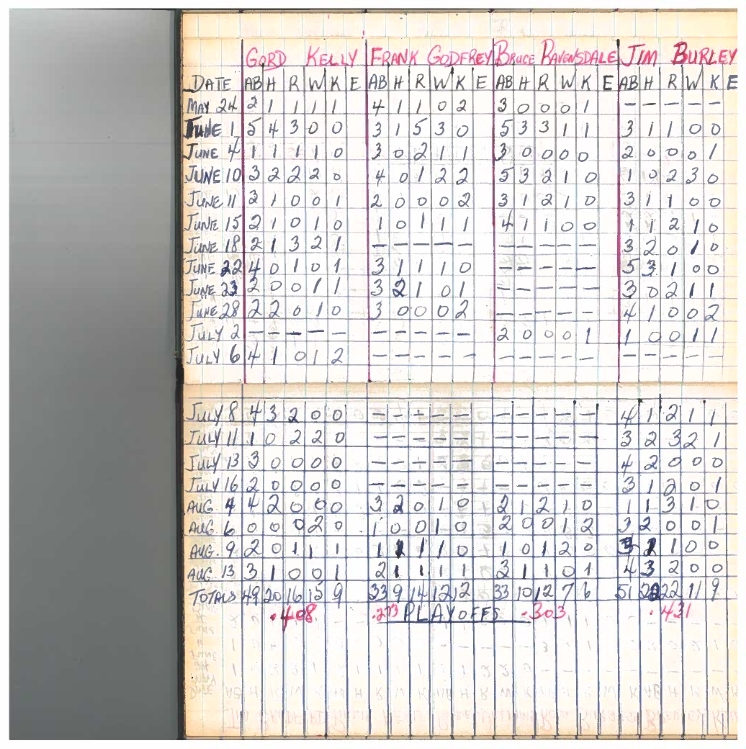 GORD KELLY FRANK GODFREY BRUCE RAVENSDALE JIM BURLEY
DATE AB H R W K E AB H R W K E AB H R W K E AB H R W K E
MAY 24 2 1 1 1 1 4 1 1 0 2 3 0 0 0 1 – – – – –
JUNE 1 5 4 3 0 0 3 1 5 3 0 5 3 3 1 1 3 1 1 0 0
JUNE 4 1 1 1 1 0 3 0 2 1 1 3 0 0 0 0 2 0 0 0 1
JUNE 10 3 2 2 2 0 4 0 1 2 2 5 3 2 1 0 1 0 2 3 0
JUNE 11 3 1 0 0 1 2 0 0 0 2 3 1 2 1 0 3 1 1 0 0
JUNE 15 2 1 0 1 0 1 0 1 1 1 4 1 1 0 0 1 1 2 1 0
JUNE 18 2 1 3 2 1 – – – – – – – – – – 3 2 0 1 0
JUNE 22 4 0 1 0 1 3 1 1 1 0 – – – – – 5 3 1 0 0
JUNE 23 2 0 0 1 1 3 2 1 0 1 – – – – – 3 0 2 1 1
JUNE 28 2 2 0 1 0 3 0 0 0 2 – – – – – 4 1 0 0 2
JULY 2 – – – – – – – – – – 2 0 0 0 1 1 0 0 1 1
JULY 6 4 1 0 1 2 – – – – – – – – – – – – – – –
JULY 8 4 3 2 0 0 – – – – – – – – – – 4 1 2 1 1
JULY 11 1 0 2 2 0 – – – – – – – – – – 3 2 3 2 1
JULY 13 3 0 0 0 0 – – – – – – – – – – 4 2 0 0 0
JULY 16 2 0 0 0 0 – – – – – – – – – – 3 1 2 0 1
AUG 4 4 2 0 0 0 3 2 0 1 0 2 1 2 1 0 1 1 3 1 0
AUG. 6 0 0 0 2 0 1 0 0 1 0 2 0 0 1 2 3 2 0 0 1
AUG. 9 2 0 1 1 1 1 1 1 1 0 1 0 1 2 0 1 1 0 0
AUG 13 3 1 0 0 1 2 1 1 1 1 3 1 1 0 1 4 3 2 0 0
TOTALS 49 20 16 15 9 33 9 14 12 12 33 10 12 7 6 51 22 22 11 9
.408 .273 PLAYOFFS .303 .431